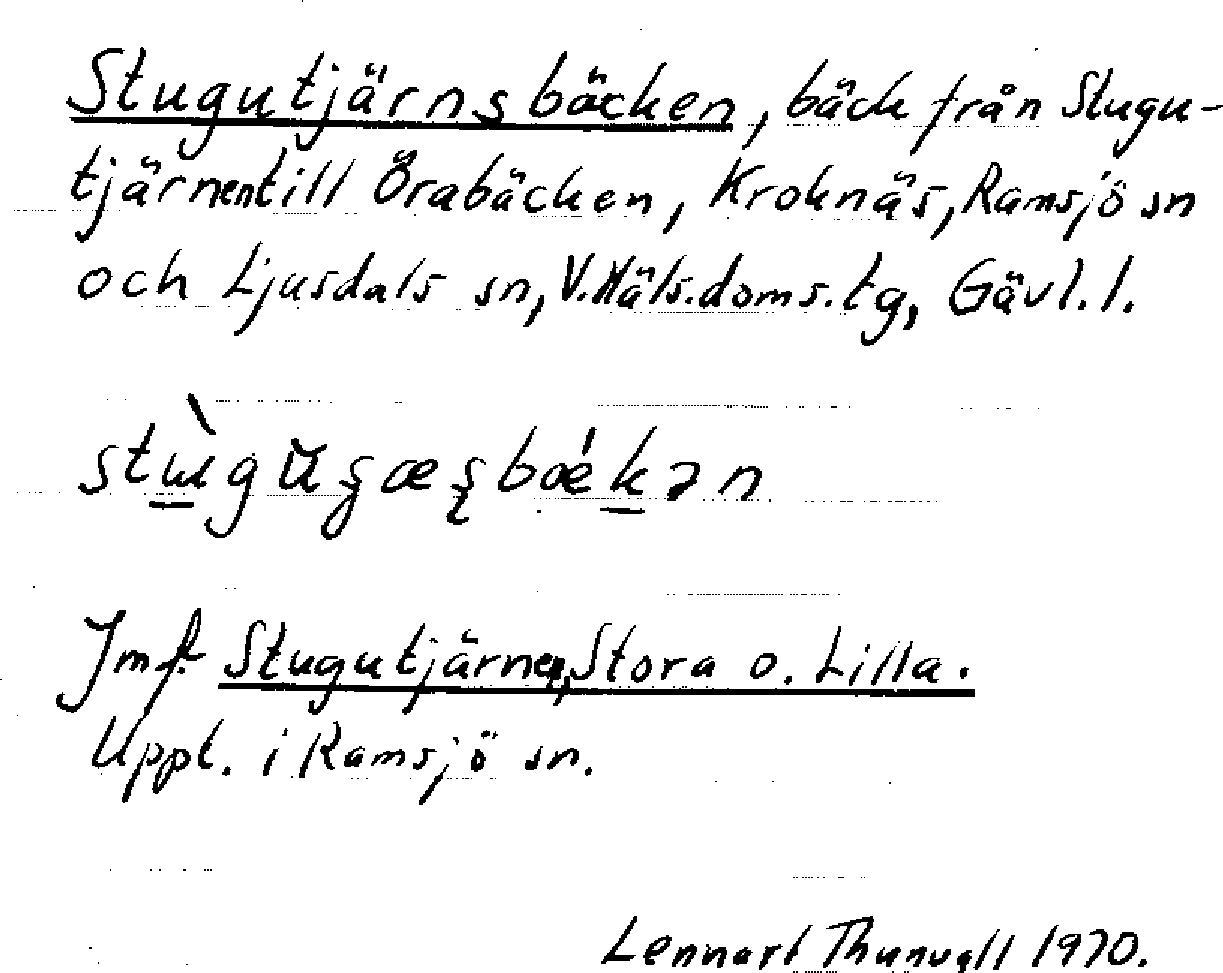 Stugutjärnsbäcken, bäck från Stugu-
tjärnen till Örabäcken, Kroknäs, Ramsjö sn
och Ljusdals sn, V.Häls.doms.tg, Gävl.l.
Jmf. Stugutjärnen, Stora o. Lilla.
Uppt. i Ramsjö sn.
Lennart Thunvall 1970.